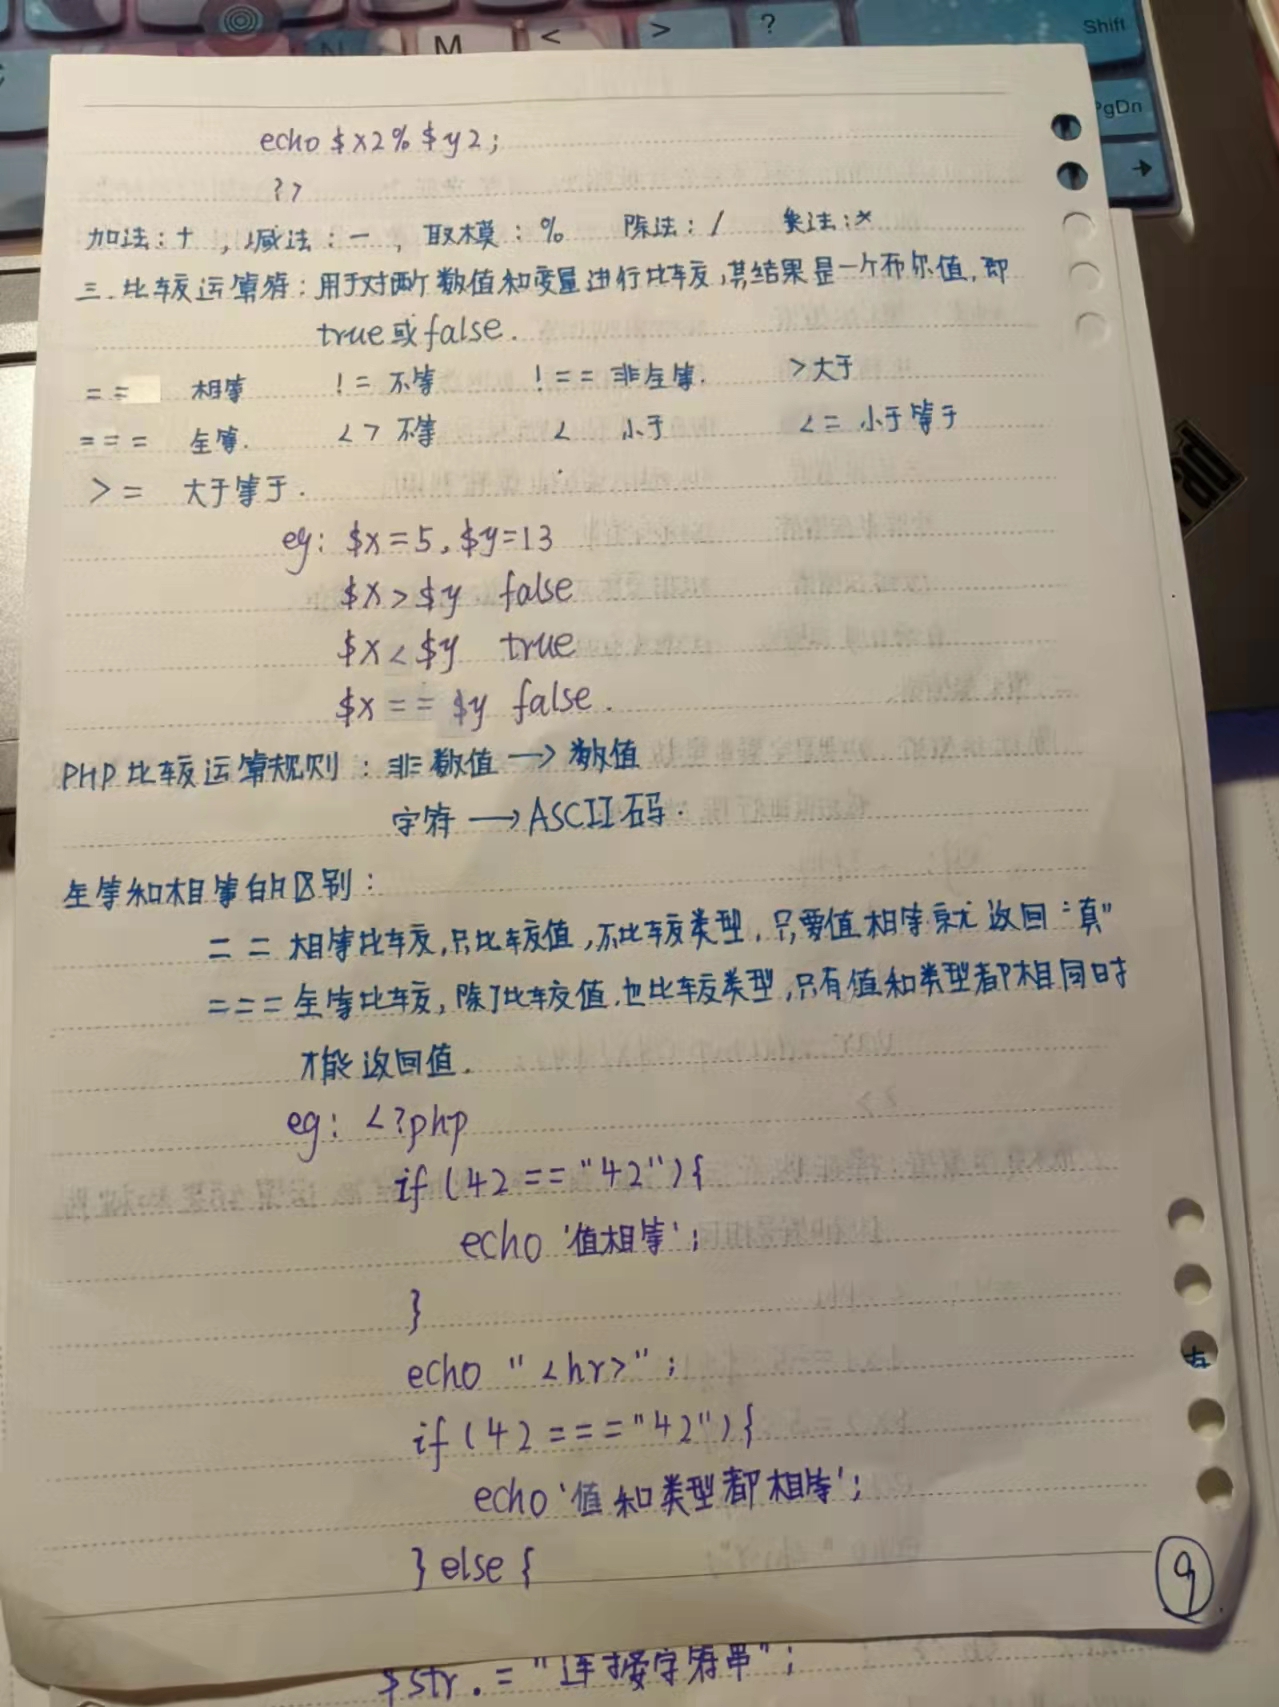 M < > ? Shift
PgDn
echo $x2%$y2;
?>
加法:+ ,减法:- ,取模:% 除法:/ 乘法:×
三.比较运算符:用于对两个数值和变量进行比较,其结果是一个布尔值,即
true或false.
== 相等 != 不等 !== 非全等. >大于
=== 全等. <> 不等 < 小于 <= 小于等于
>= 大于等于.
eg: $x=5,$y=13
$x>$y false
$x<$y true
$x==$y false.
PHP比较运算规则:非数值→数值
字符→ASCII码.
全等和相等的区别:
== 相等比较,只比较值,不比较类型,只要值相等就返回"真"
=== 全等比较,除了比较值,也比较类型,只有值和类型都相同时
才能返回值.
eg: <?php
if(42=="42"){
echo '值相等';
}
echo "<hr>";
if(42==="42"){
echo '值和类型都相等';
}else{
9
$str.="连接字符串";